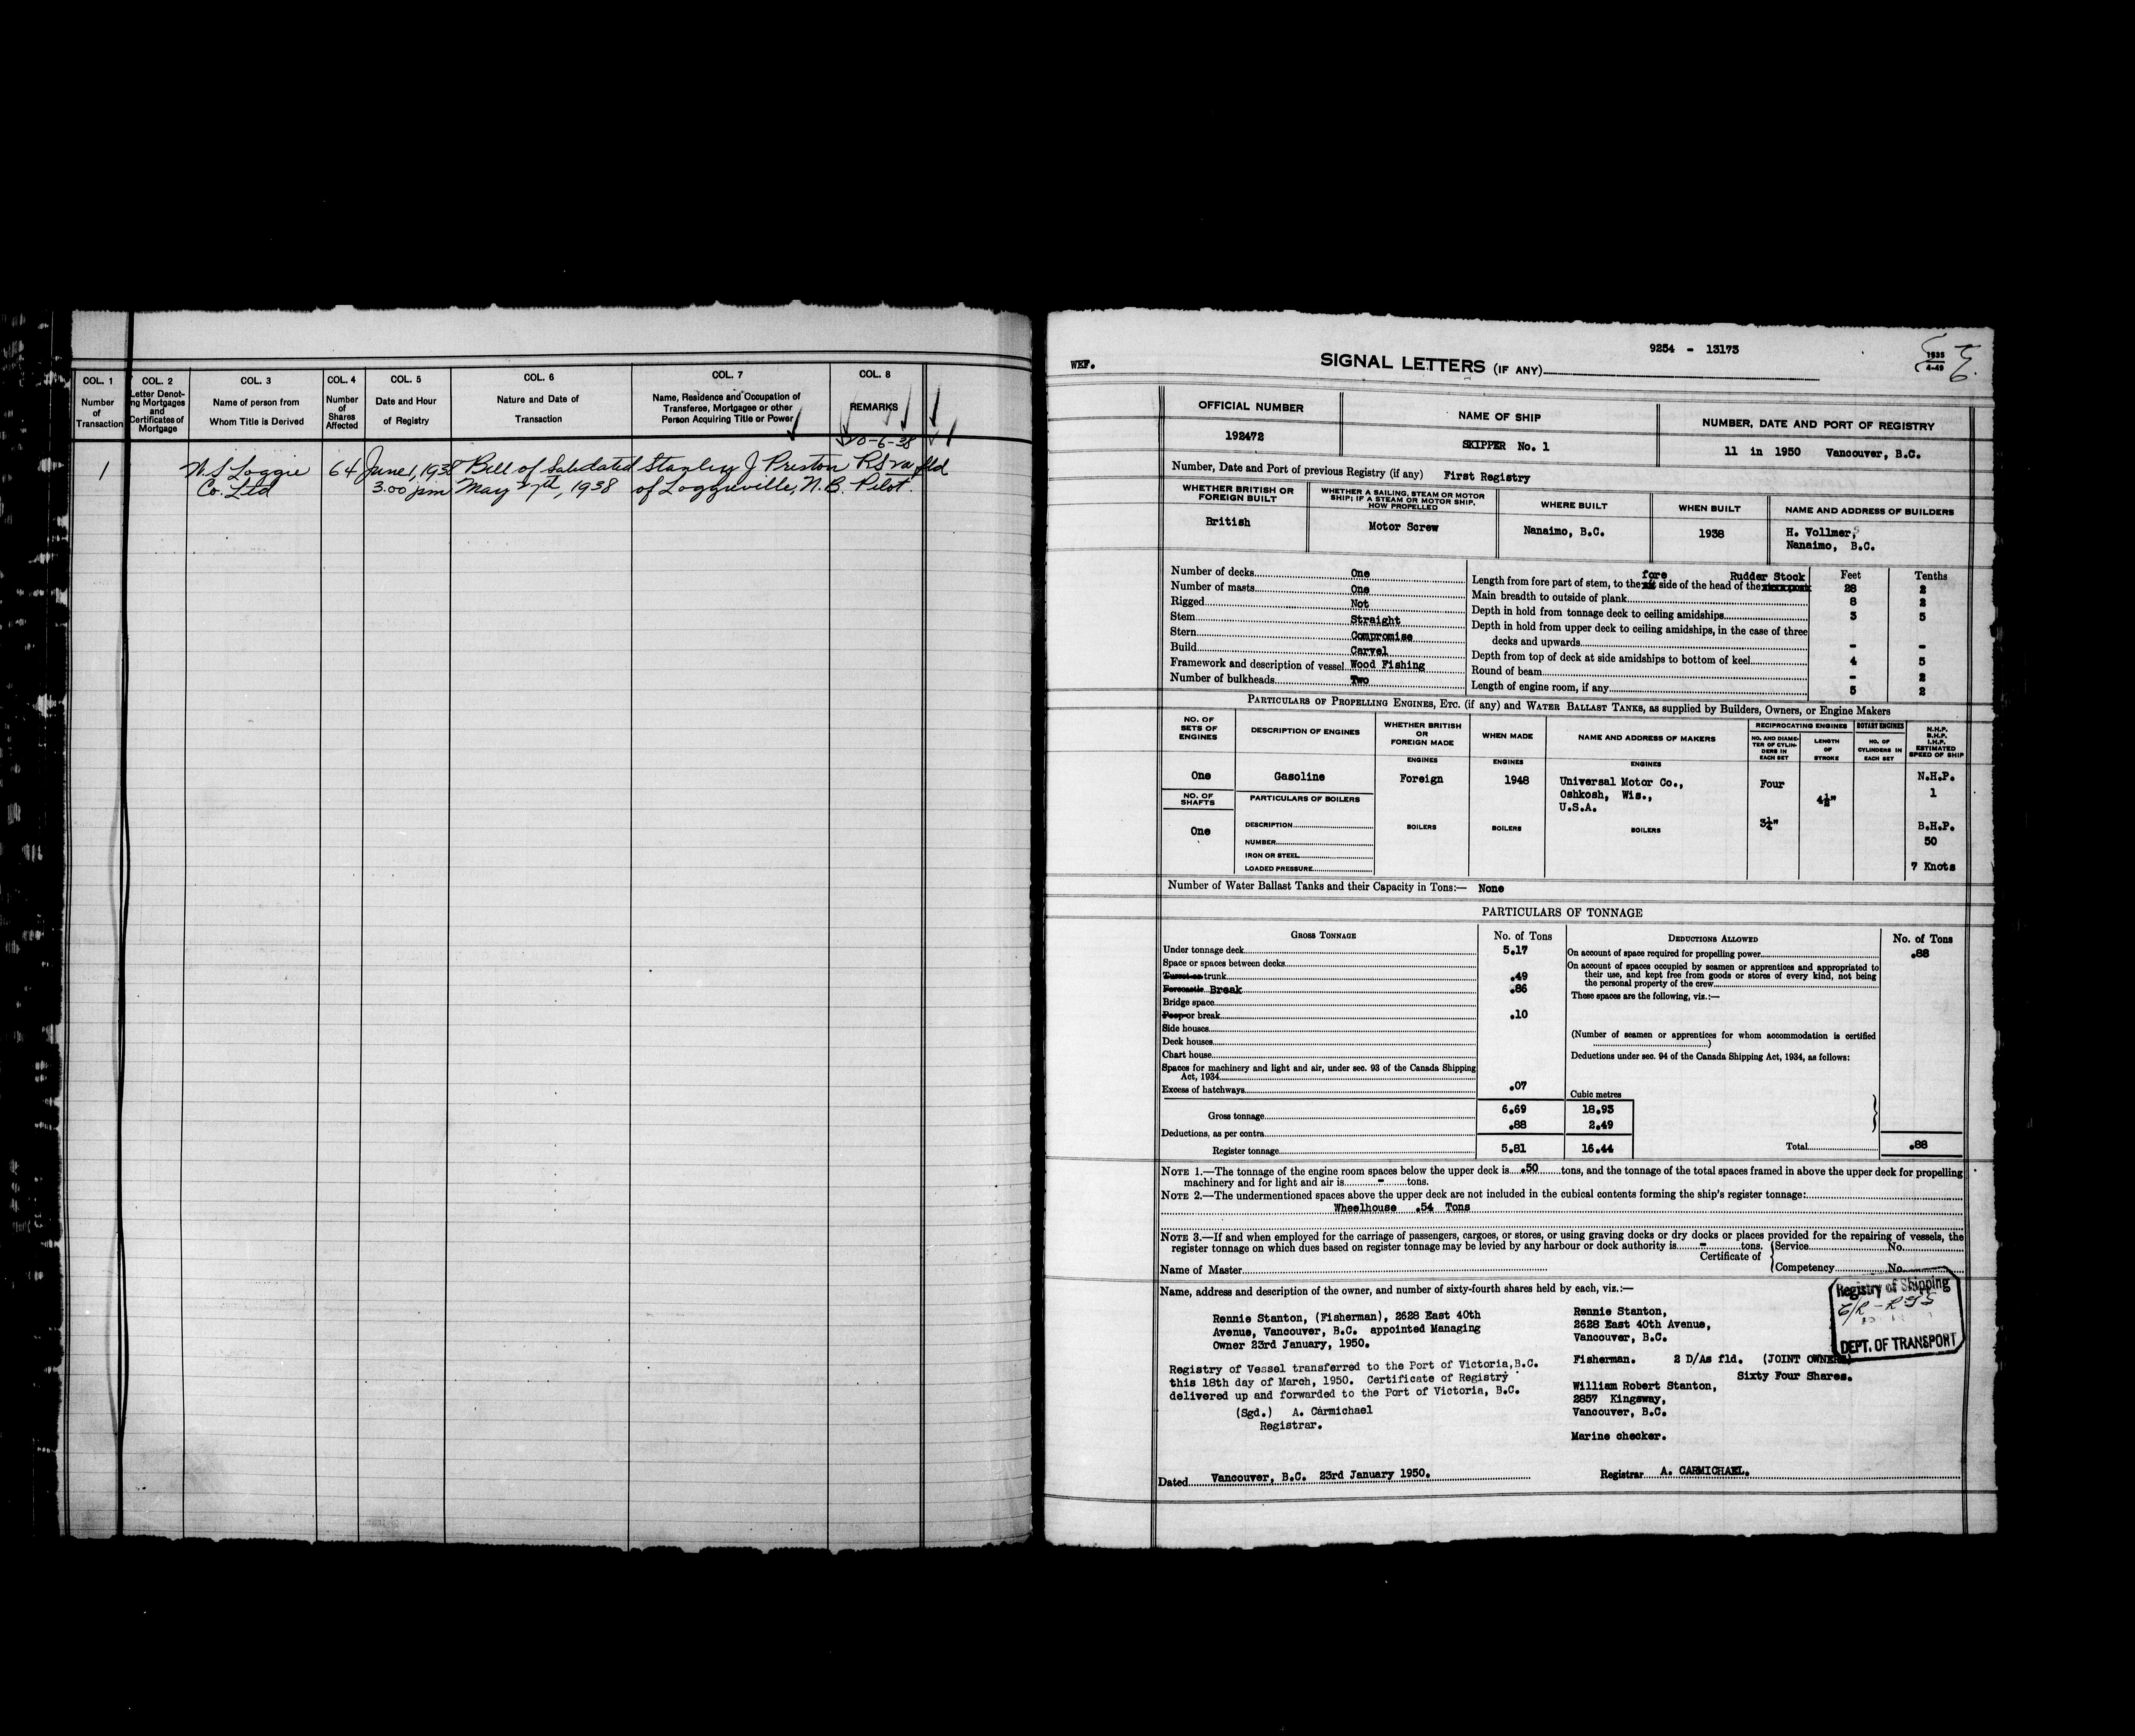 COL. 1 COL. 2 COL. 3 COL. 4 COL. 5 COL. 6 COL. 7 COL. 8
Number of Transaction
Letter Denoting Mortgages and Certificates of Mortgage
Name of person from Whom Title is Derived
Number of Shares Affected
Date and Hour of Registry
Nature and Date of Transaction
Name, Residence and Occupation of Transferee, Mortgagee or other Person Acquiring Title or Power
REMARKS
20-6-38
1 W S Loggie 64 June 1, 1938 Bill of Sale dated Stanley J Preston RS fld
Co. Ltd 3.00 pm May 27th, 1938 of Loggieville, N.B. Pilot.
9254 - 13173
1935
4-49
WEF.
SIGNAL LETTERS (IF ANY)
OFFICIAL NUMBER
NAME OF SHIP
NUMBER, DATE AND PORT OF REGISTRY
192472
SKIPPER No. 1
11 in 1950 Vancouver, B.C.
Number, Date and Port of previous Registry (if any) First Registry
WHETHER BRITISH OR FOREIGN BUILT
WHETHER A SAILING, STEAM OR MOTOR SHIP; IF A STEAM OR MOTOR SHIP, HOW PROPELLED
WHERE BUILT
WHEN BUILT
NAME AND ADDRESS OF BUILDERS
British
Motor Screw
Nanaimo, B.C.
1938
H. Vollmer,
Nanaimo, B.C.
Number of decks One
Number of masts One
Rigged Not
Stem Straight
Stern Compromise
Build Carvel
Framework and description of vessel Wood Fishing
Number of bulkheads Two
Feet Tenths
fore Rudder Stock
Length from fore part of stem, to the side of the head of the 28 2
Main breadth to outside of plank 8 2
Depth in hold from tonnage deck to ceiling amidships 3 5
Depth in hold from upper deck to ceiling amidships, in the case of three
decks and upwards - -
Depth from top of deck at side amidships to bottom of keel 4 5
Round of beam - 2
Length of engine room, if any 5 2
PARTICULARS OF PROPELLING ENGINES, ETC. (if any) and WATER BALLAST TANKS, as supplied by Builders, Owners, or Engine Makers
NO. OF SETS OF ENGINES
DESCRIPTION OF ENGINES
WHETHER BRITISH OR FOREIGN MADE
WHEN MADE
NAME AND ADDRESS OF MAKERS
RECIPROCATING ENGINES
ROTARY ENGINES
NO. AND DIAMETER OF CYLINDERS IN EACH SET
LENGTH OF STROKE
NO. OF CYLINDERS IN EACH SET
N.H.P.
B.H.P.
I.H.P.
ESTIMATED SPEED OF SHIP
ENGINES ENGINES ENGINES
One
Gasoline
Foreign
1948
Universal Motor Co.,
Oshkosh, Wis.,
U.S.A.
Four
4½"
3½"
N.H.P.
1
B.H.P.
50
7 Knots
NO. OF SHAFTS
PARTICULARS OF BOILERS
One
DESCRIPTION
NUMBER
IRON OR STEEL
LOADED PRESSURE
BOILERS BOILERS BOILERS
Number of Water Ballast Tanks and their Capacity in Tons:— None
PARTICULARS OF TONNAGE
GROSS TONNAGE
No. of Tons
DEDUCTIONS ALLOWED
No. of Tons
Under tonnage deck 5.17
Space or spaces between decks
Turret or trunk .49
Forecastle Break .86
Bridge space
Poop or break .10
Side houses
Deck houses
Chart house
Spaces for machinery and light and air, under sec. 93 of the Canada Shipping
Act, 1934
Excess of hatchways .07
Cubic metres
Gross tonnage 6.69 18.93
Deductions, as per contra .88 2.49
Register tonnage 5.81 16.44
On account of space required for propelling power .88
On account of spaces occupied by seamen or apprentices and appropriated to
their use, and kept free from goods or stores of every kind, not being
the personal property of the crew
These spaces are the following, viz.:—
(Number of seamen or apprentices for whom accommodation is certified
)
Deductions under sec. 94 of the Canada Shipping Act, 1934, as follows:
Total .88
NOTE 1.—The tonnage of the engine room spaces below the upper deck is .50 tons, and the tonnage of the total spaces framed in above the upper deck for propelling
machinery and for light and air is - tons.
NOTE 2.—The undermentioned spaces above the upper deck are not included in the cubical contents forming the ship's register tonnage:
Wheelhouse .54 Tons
NOTE 3.—If and when employed for the carriage of passengers, cargoes, or stores, or using graving docks or dry docks or places provided for the repairing of vessels, the
register tonnage on which dues based on register tonnage may be levied by any harbour or dock authority is - tons.
Name of Master
Certificate of
Service No.
Competency No.
Name, address and description of the owner, and number of sixty-fourth shares held by each, viz.:—
Registry of Shipping
DEPT. OF TRANSPORT
Rennie Stanton, (Fisherman), 2628 East 40th
Avenue, Vancouver, B.C. appointed Managing
Owner 23rd January, 1950.
Registry of Vessel transferred to the Port of Victoria, B.C.
this 18th day of March, 1950. Certificate of Registry
delivered up and forwarded to the Port of Victoria, B.C.
(Sgd.) A. Carmichael
Registrar.
Rennie Stanton,
2628 East 40th Avenue,
Vancouver, B.C.
Fisherman. 2 D/As fld. (JOINT OWNERS)
Sixty Four Shares.
William Robert Stanton,
2857 Kingsway,
Vancouver, B.C.
Marine checker.
Dated Vancouver, B.C. 23rd January 1950.
Registrar A. CARMICHAEL.